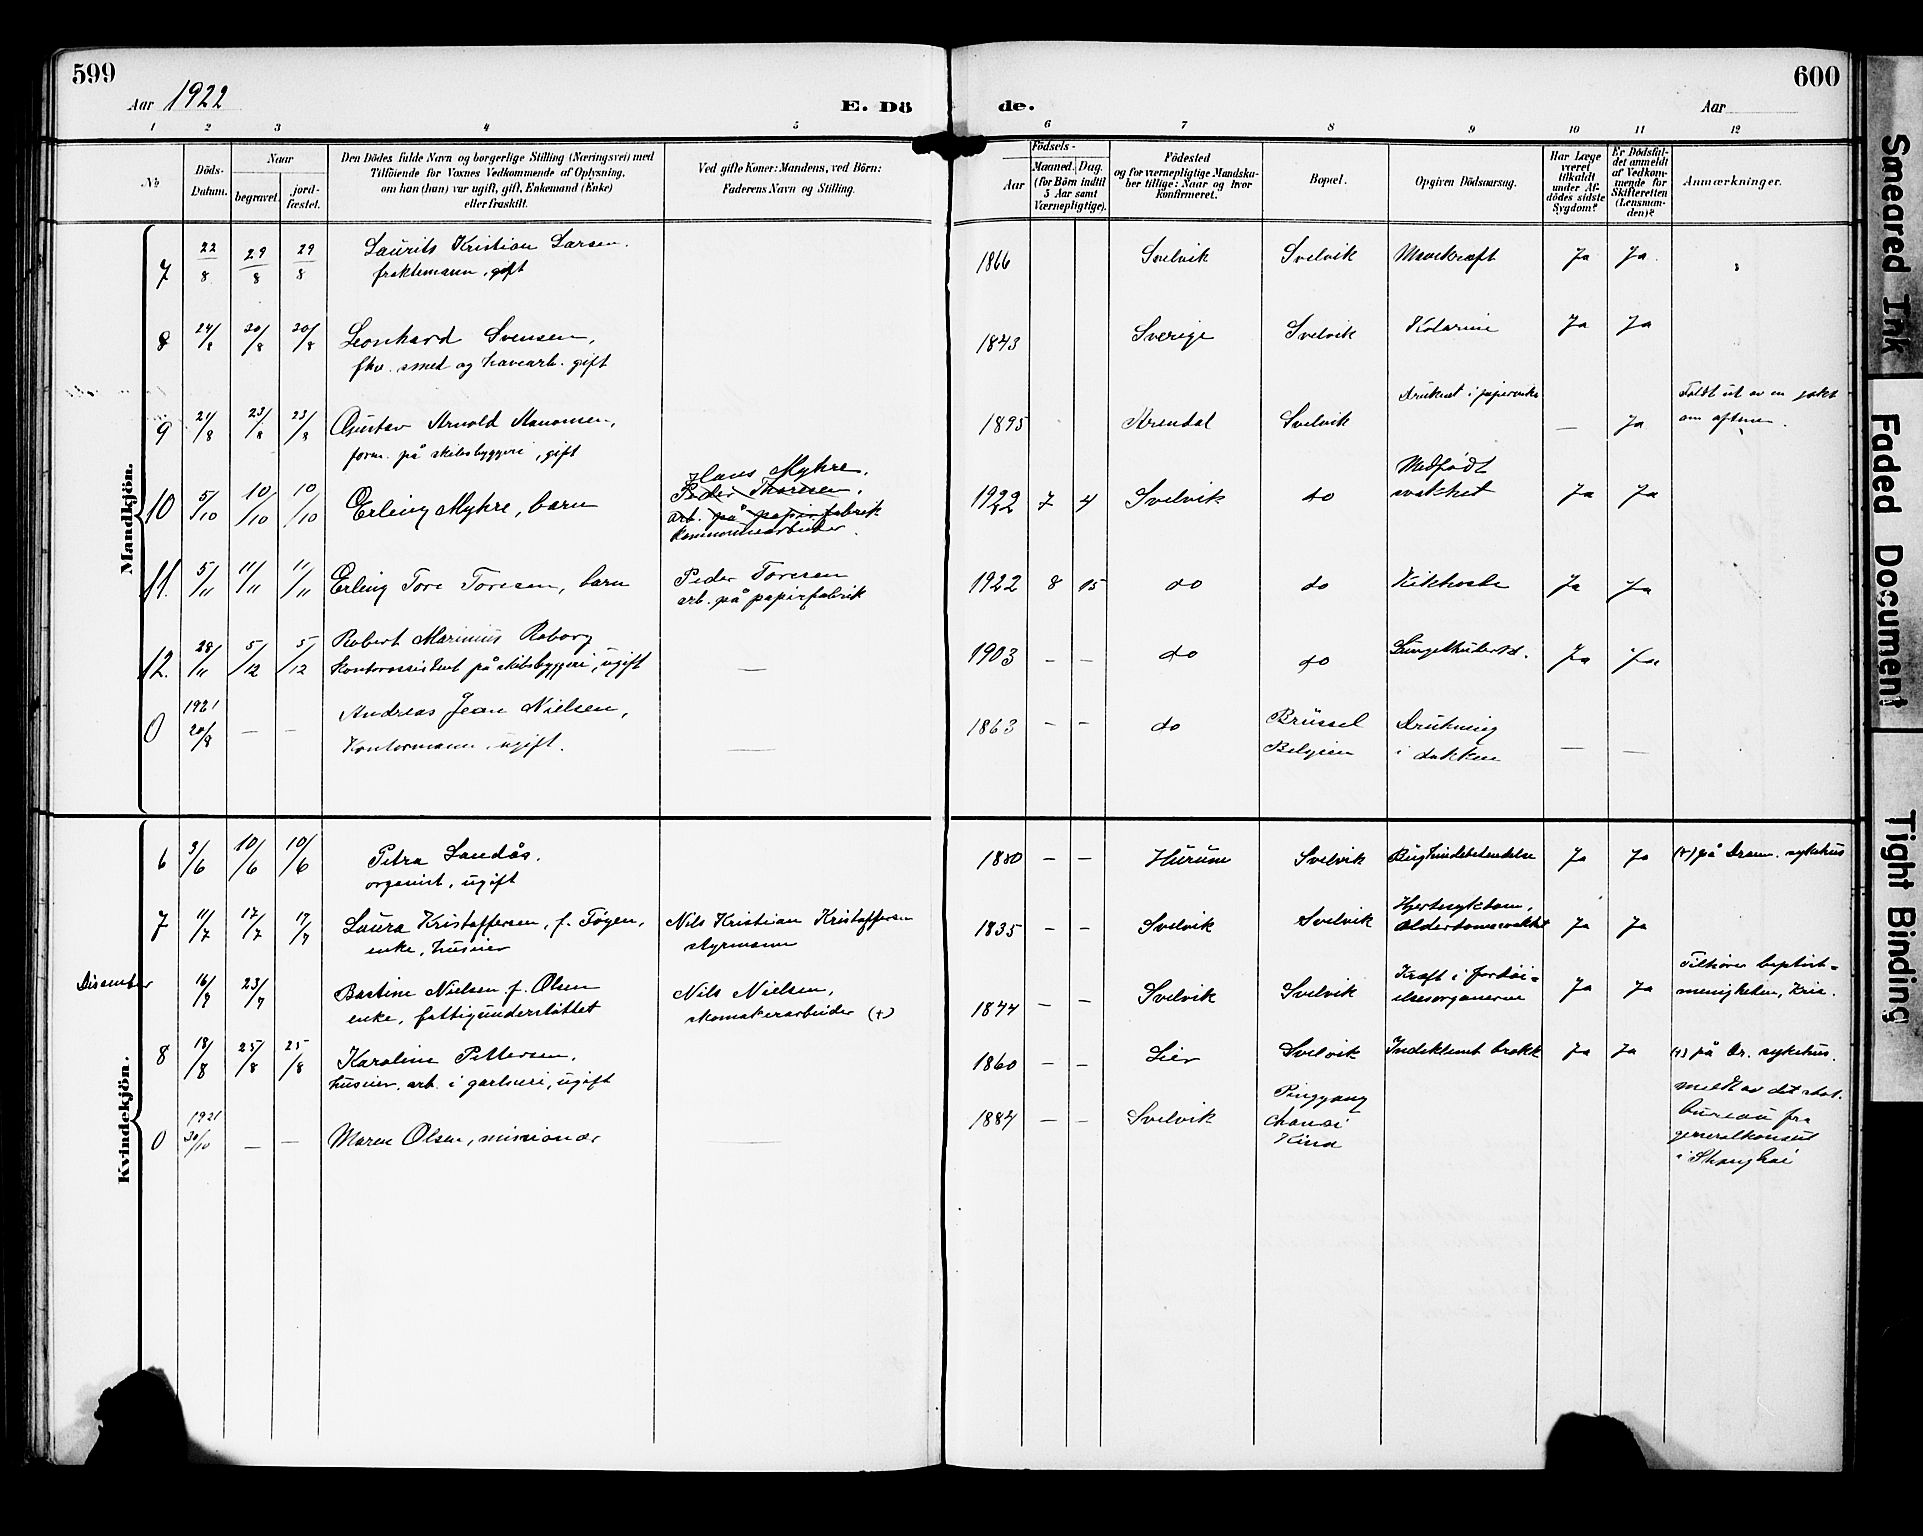 599
Aar 1922
E. Dö
de.
Aar
600
1 2 3 4 5 6 7 8 9 10 11 12
No
Döds-
Datum.
Naar
begravet.
jord-
fæstet.
Den Dödes fulde Navn og borgerlige Stilling (Næringsvei) med
Tilföiende for Voxnes Vedkommende af Oplysning,
om han (hun) var ugift, gift, Enkemand (Enke)
eller fraskilt.
Ved gifte Koner: Mandens, ved Börn:
Faderens Navn og Stilling.
Födsels-
Aar
Maaned. Dag.
(for Börn indtil
5 Aar samt
Værnepligtige).
Födested
og for værnepligtige Mandska-
ber tillige: Naar og hvor
konfirmeret.
Bopæl.
Opgiven Dödsaarsag.
Har Læge
været
tilkaldt
under Af-
dödes sidste
Sygdom?
Er Dödsfal-
det anmeldt
af Vedkom-
mende for
Skifteretten
(Lensman-
den)?
Anmærkninger.
Mandkjön.
7 22/8 29/8 29/8 Laurits Kristian Larsen.
fraktemann, gift
1866 Svelvik Svelvik Mavekræft Ja Ja.
8 24/8 30/8 30/8 Leonhard Svensen,
fhv. smed og havearb. gift
1843 Sverige Svelvik Kolerine Ja Ja
9 21/8 23/8 23/8 Gustav Arnold Aanonsen,
form. på skibsbyggeri, gift
1895 Arendal Svelvik Druknet i — Ja
Faldt ut av en jakt
om aftnen.
10 5/10 10/10 10/10 Erling Myhre, barn
Hans Myhre,
Peder Thoresen,
arb. på papirfabrik
kommunearbeider.
1922 7 4 Svelvik do
Medfødt
svakhet Ja Ja
11. 5/11 11/11 11/11 Erling Tore Toresen, barn
Peder Toresen
arb. på papirfabrik
1922 8 15 do do Kikhoste Ja Ja
12. 28/11 5/12 5/12 Robert Marinius Roborg
kontorassistent på skibsbyggeri, ugift —
1903 — — do do Ja Ja
0 1921
20/8 — — Andreas Jean Nielsen,
Kontormann, ugift. —
1863 — — do Brüssel
Belgien
Drukning
i dokken — —
Kvindekjön.
6 3/6 10/6 10/6 Petra Landås.
organist, ugift
1880 — — Hurum Svelvik Bughindebetendelse Ja Ja (+) på Dram. sykehus
7 11/7 17/7 17/7 Laura Kristoffersen, f. Tøyen,
enke, huseier
Nils Kristian Kristoffersen
styrmann
1835 — — Svelvik Svelvik Hjertesykdom,
alderdomssvakhet Ja Ja
Disenter 16/7 23/7 Bastine Nielsen f. Olsen
enke, fattigunderstøttet
Nils Nielsen,
skomakerarbeider (+)
1844 — — Svelvik Svelvik Kræft i fordøi-
elsesorganerne Ja Ja
Tilhører baptist-
menigheten, Kria.
8 18/8 25/8 25/8 Karoline Pettersen,
huseier, arb. i gartneri, ugift
1860 — — Lier Svelvik Indeklemt brokk Ja Ja (+) på Dr. sykehus.
0 1921
30/10 — — Maren Olsen, missionær —
1884 — — Svelvik Pingyang
Chansi
Kina
meldt av det stat.
bureau fra
generalkonsul
i Shanghai
Smeared Ink
Faded Document
Tight Binding